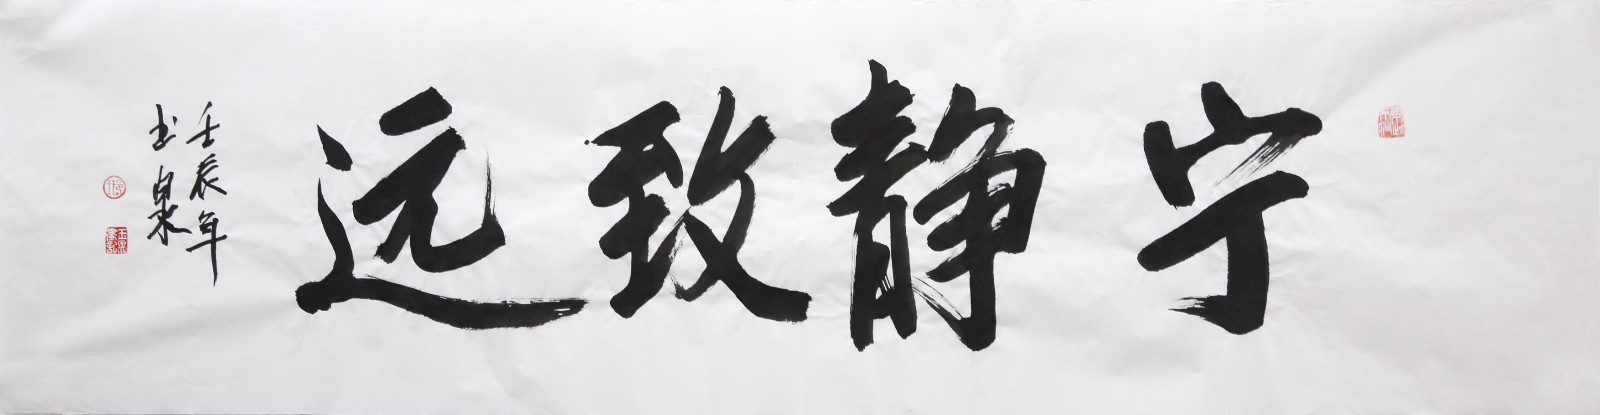 宁静致远
壬辰年
玉泉